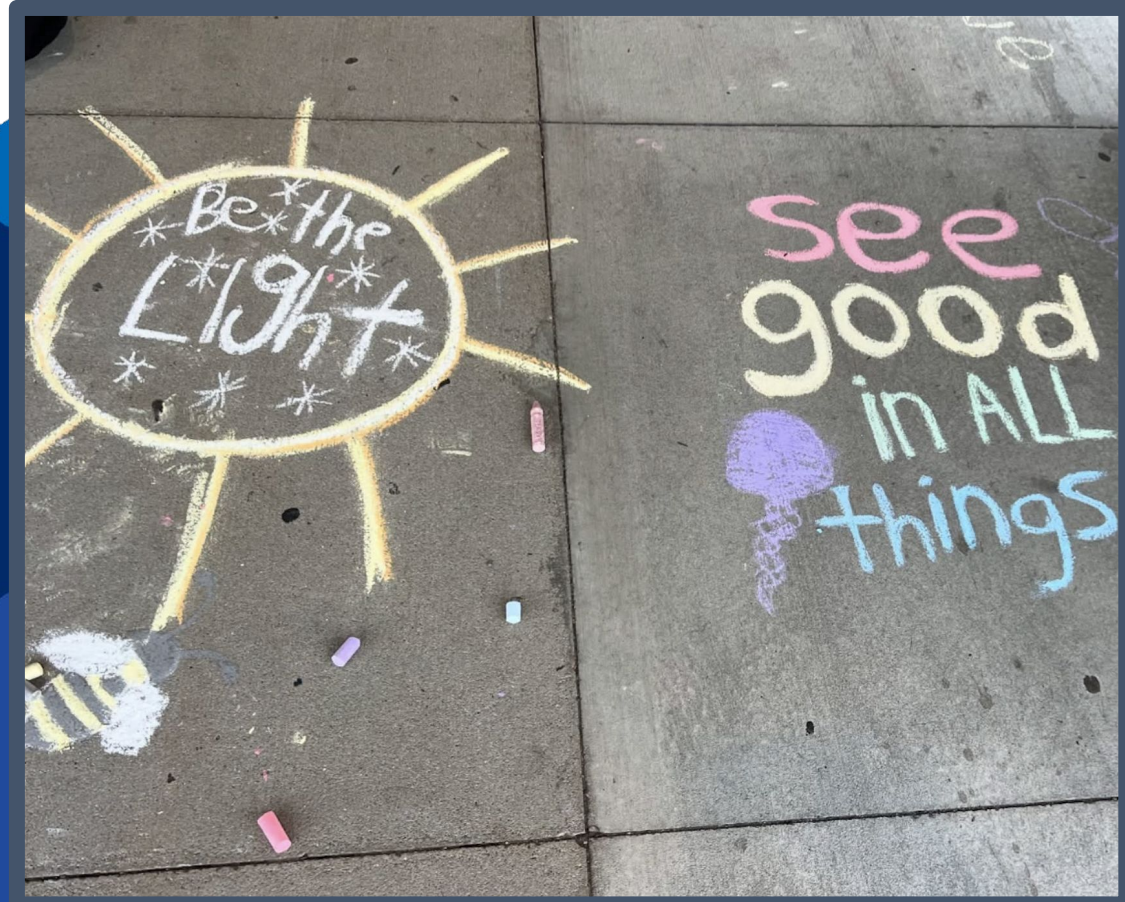 Be the
LIght
see
good
in ALL
things